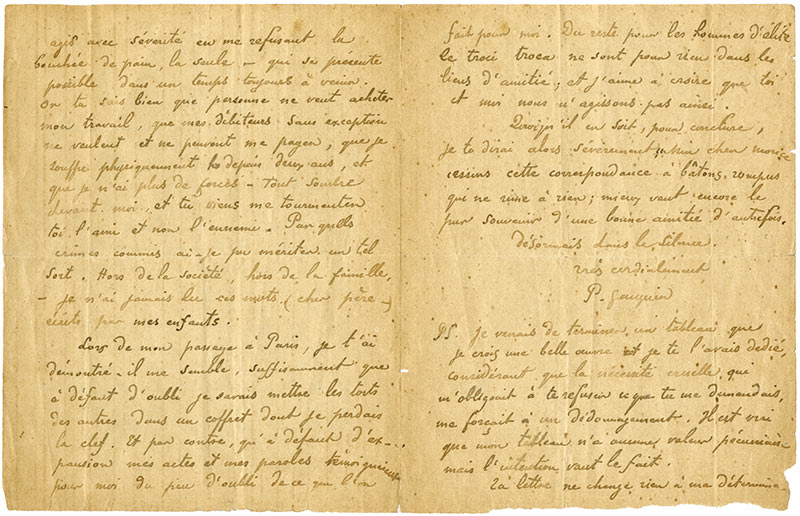 agis avec sévérité en me refusant la
bouchée de pain, la seule - qui se présente
possible dans un temps toujours à venir.
Or tu sais bien que personne ne veut acheter
mon travail, que mes débiteurs sans exception
ne veulent et ne peuvent me payer, que je
souffre physiquement depuis deux ans, et
que je n'ai plus de forces - Tout sombre
devant moi, et tu viens me tourmenter
toi l'ami et non l'ennemi. Par quels
crimes commis ai-je pu mériter un tel
sort. Hors de la société, hors de la famille,
- je n'ai jamais lu ces mots (cher père -)
écrits par mes enfants.
Lors de mon passage à Paris, je t'ai
démontré - il me semble, suffisamment que
à défaut d'oubli je savais mettre les torts
des autres dans un coffret dont je perdais
la clef. Et par contre, qu'à défaut d'ex-
pansion mes actes et mes paroles témoignaient
pour moi du peu d'oubli de ce que l'on
fait pour moi. Du reste pour les hommes d'élite
le troci troca ne sont pour rien dans les
liens d'amitié; et j'aime à croire que toi
et moi nous n'agissons pas ainsi.
Quoiqu'il en soit, pour conclure,
je te dirai alors sévèrement, mon cher
cessons cette correspondance à bâtons rompus
qui ne rime à rien; mieux vaut encore le
pur souvenir d'une bonne amitié d'autrefois.
Désormais dans le silence.
très cordialement
P. Gauguin
PS. Je venais de terminer un tableau que
je crois une belle œuvre et je te l'avais dédié,
considérant que la nécessité cruelle que
m'obligeait à te refuser ce que tu me demandais,
me forçait à un dédomagement. Il est vrai
que mon tableau n'a aucune valeur pécuniaire
mais l'intention vaut le fait.
Ta lettre ne change rien à ma détermina-